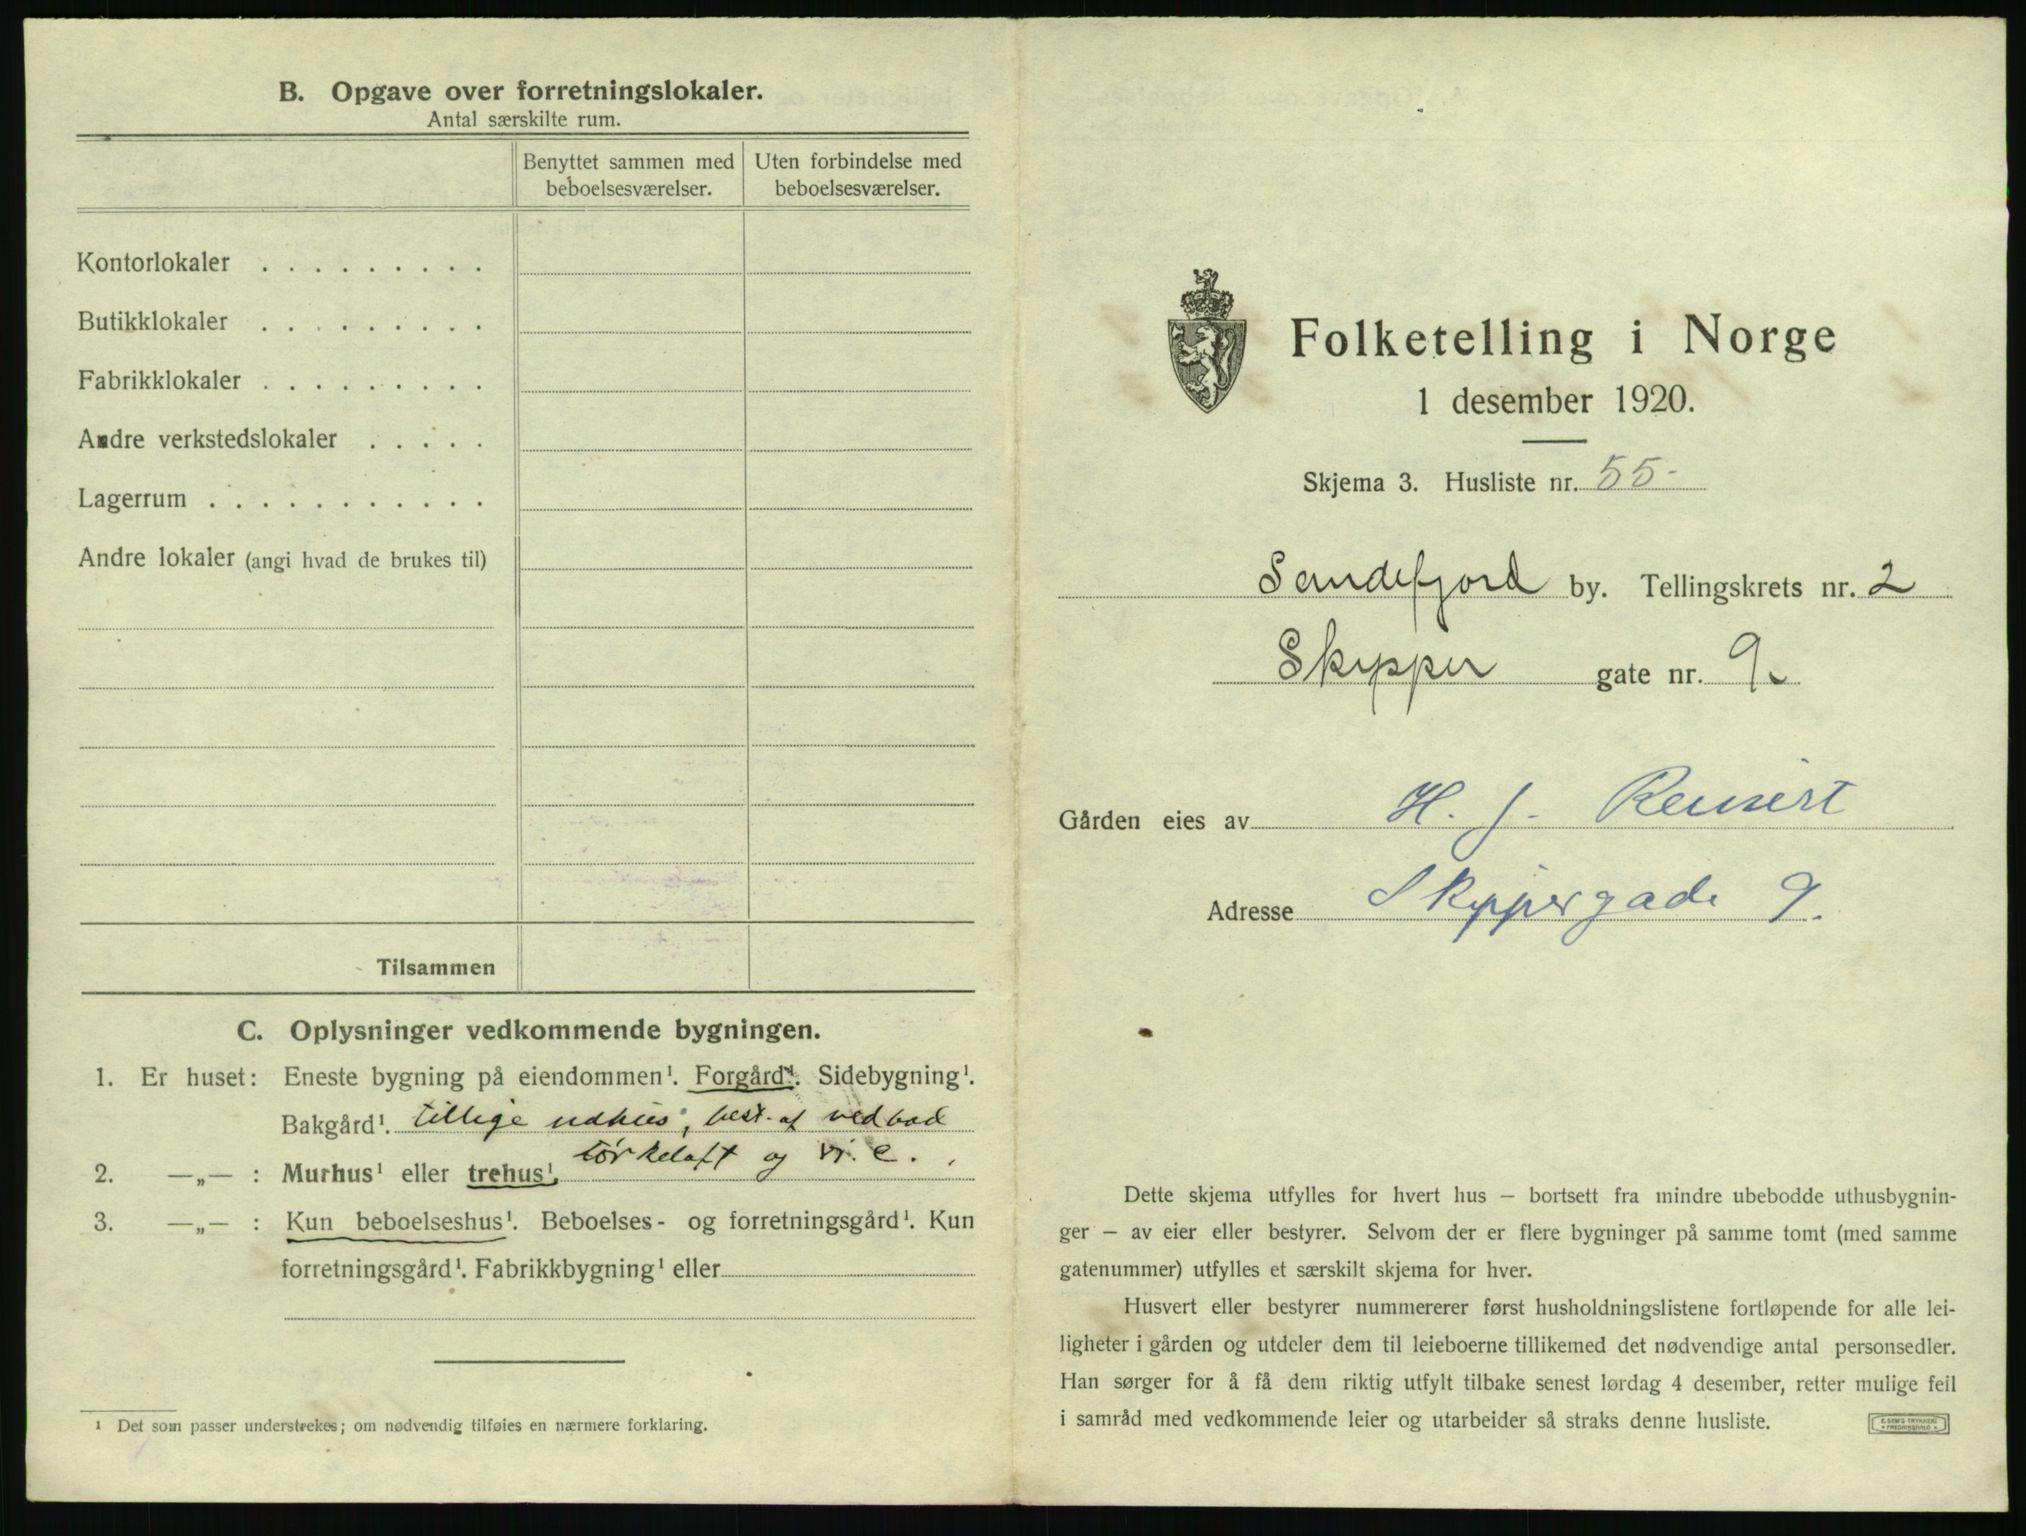 B. Opgave over forretningslokaler.
Antal særskilte rum.
Benyttet sammen med beboelsesværelser.
Uten forbindelse med beboelsesværelser.
Kontorlokaler . . . . . . . . .
Butikklokaler . . . . . . . . .
Fabrikklokaler . . . . . . . . .
Andre verkstedslokaler . . . . .
Lagerrum . . . . . . . . . . .
Andre lokaler (angi hvad de brukes til)
Tilsammen
C. Oplysninger vedkommende bygningen.
1. Er huset: Eneste bygning på eiendommen¹. Forgård¹. Sidebygning¹.
Bakgård¹. tillige udhus, best. af vedbod
tørkeloft og w.c.
2. —„— : Murhus¹ eller trehus¹.
3. —„— : Kun beboelseshus¹. Beboelses- og forretningsgård¹. Kun
forretningsgård¹. Fabrikkbygning¹ eller
¹ Det som passer understrekes; om nødvendig tilføies en nærmere forklaring.
Folketelling i Norge
1 desember 1920.
Skjema 3. Husliste nr. 55
Sandefjord by. Tellingskrets nr. 2
Skypper gate nr. 9.
Gården eies av H. J. Reusert
Adresse Skyppergade 9.
Dette skjema utfylles for hvert hus — bortsett fra mindre ubebodde uthusbygnin-
ger — av eier eller bestyrer. Selvom der er flere bygninger på samme tomt (med samme
gatenummer) utfylles et særskilt skjema for hver.
Husvert eller bestyrer nummererer først husholdningslistene fortløpende for alle lei-
ligheter i gården og utdeler dem til leieboerne tillikemed det nødvendige antal personsedler.
Han sørger for å få dem riktig utfylt tilbake senest lørdag 4 desember, retter mulige feil
i samråd med vedkommende leier og utarbeider så straks denne husliste.
E. SEM'S TRYKKERI
FREDRIKSHALD